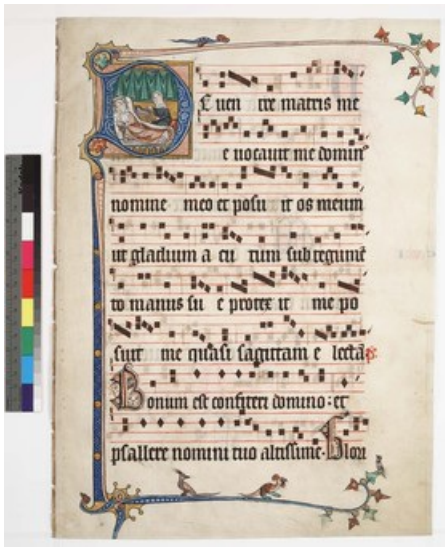 De uen tre matris me
e uocauit me domin
nomine meo et posu it os meum
ut gladium a cu tum sub tegume
to manus su e protex it me po
suit me quasi sagittam e lecta
Bonum est confiteri domino: et
psallere nomini tuo altissime. Glori